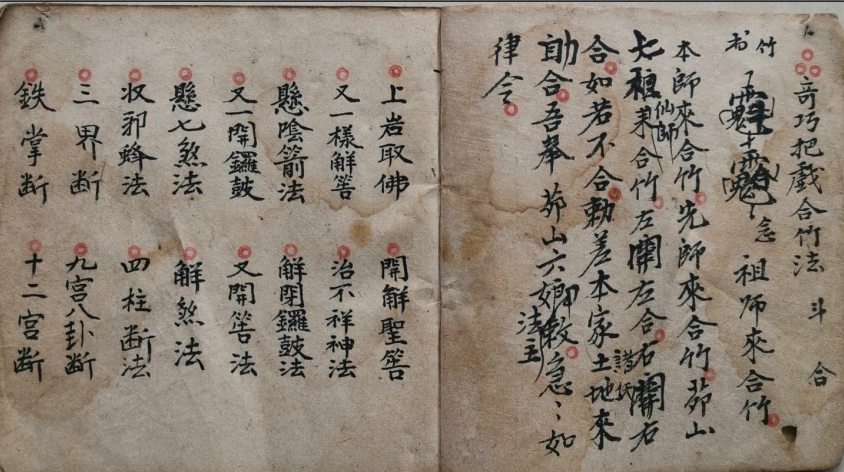 奇巧把戲合竹法 斗合
竹书 念 祖師來合竹
本師來合竹先師來合竹茆山
七祖仙師來合竹左開左合右開右
合如若不合勅差本家土地來
助合吾奉茆山六娘勅法主急〻如
律令
上岩取佛 開解聖筶
又一樣解筶 治不祥神法
懸陰箭法 解閉鑼鼓法
又一開鑼鼓 又開筶法
懸七煞法 解煞法
収邪蜂法 四柱断法
三界断 九宫八卦断
鉄掌断 十二宫断